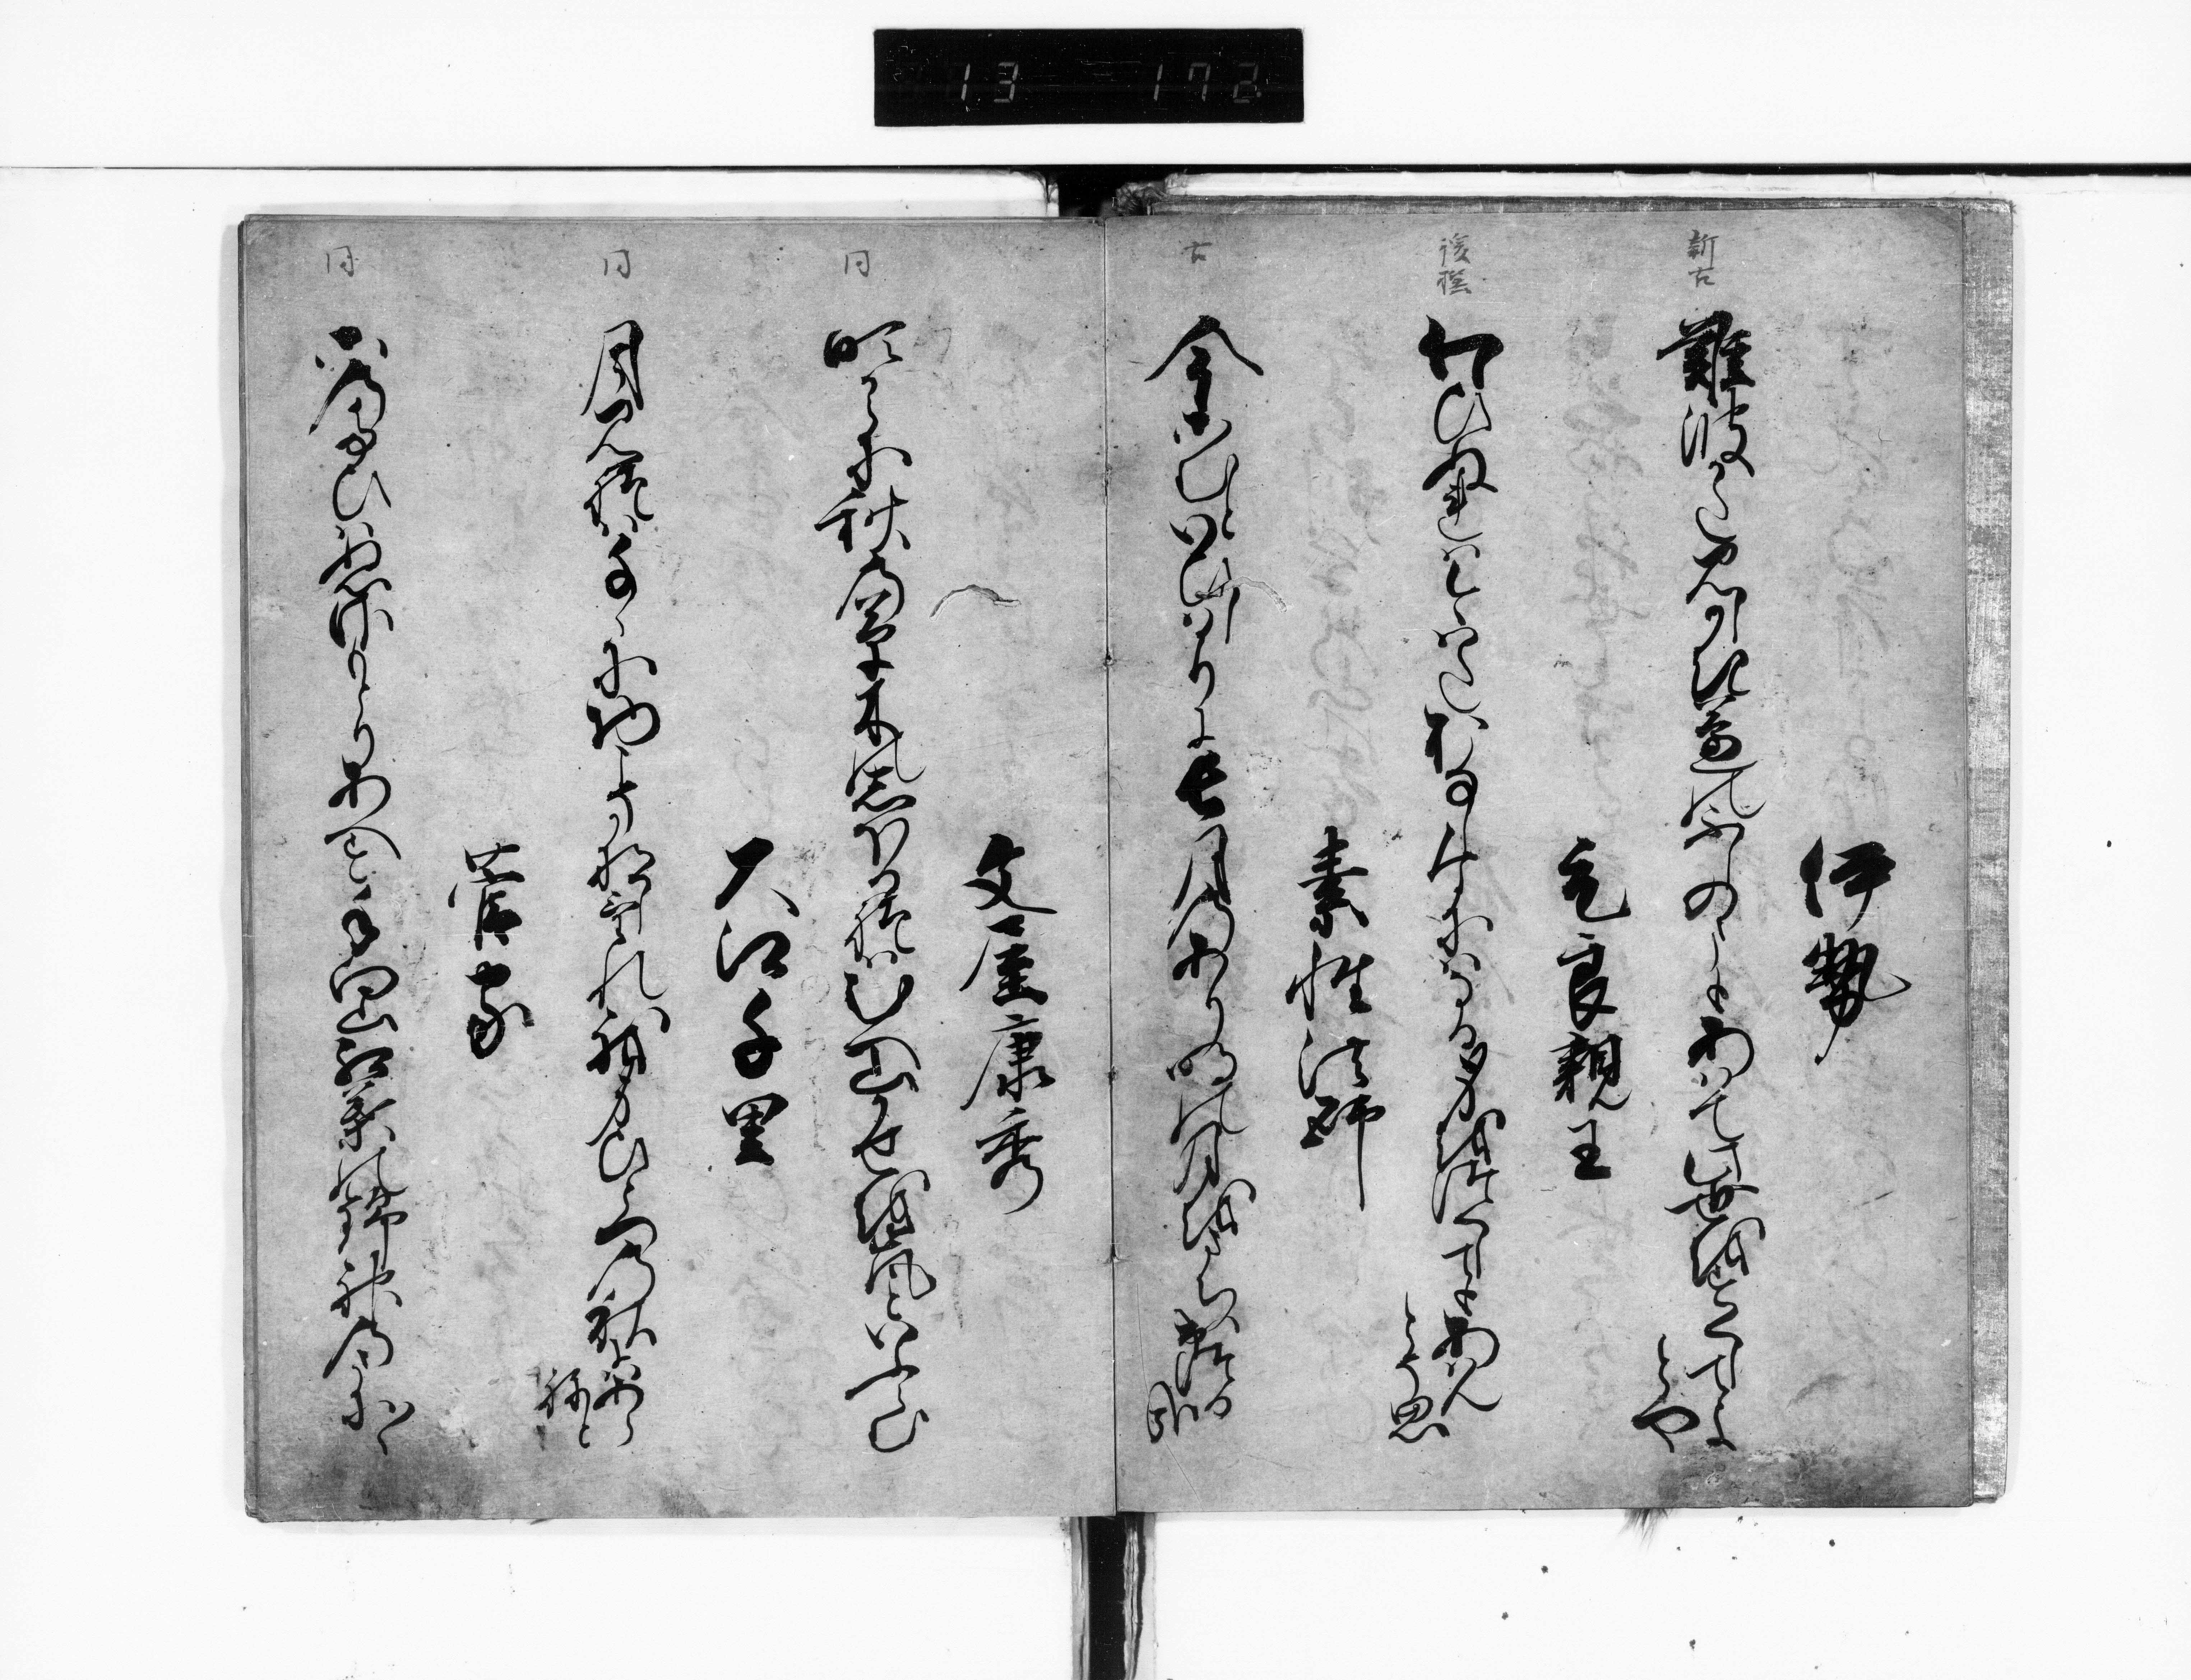 13 172
伊勢
新古
難波かたみしかき蘆のふしのまもあはて此世を過くしてよ
とや
元良親王
後撰
わひぬれはいまはた於なしなにはなる身を徒くしてもあはん
とそ思
素性法師
古
今こむといひしはかりに長月の有明の月を待出つる
哉
文屋康秀
同
吹からに秋の草木のしほるれはむへ山かせを嵐といふらむ
大江千里
同
月見れは千々に物こそ悲しけれ我身ひとつの秋にはあら
祢と
菅家
同
此たひはぬさもとりあへす手向山紅葉の錦神のまに〱